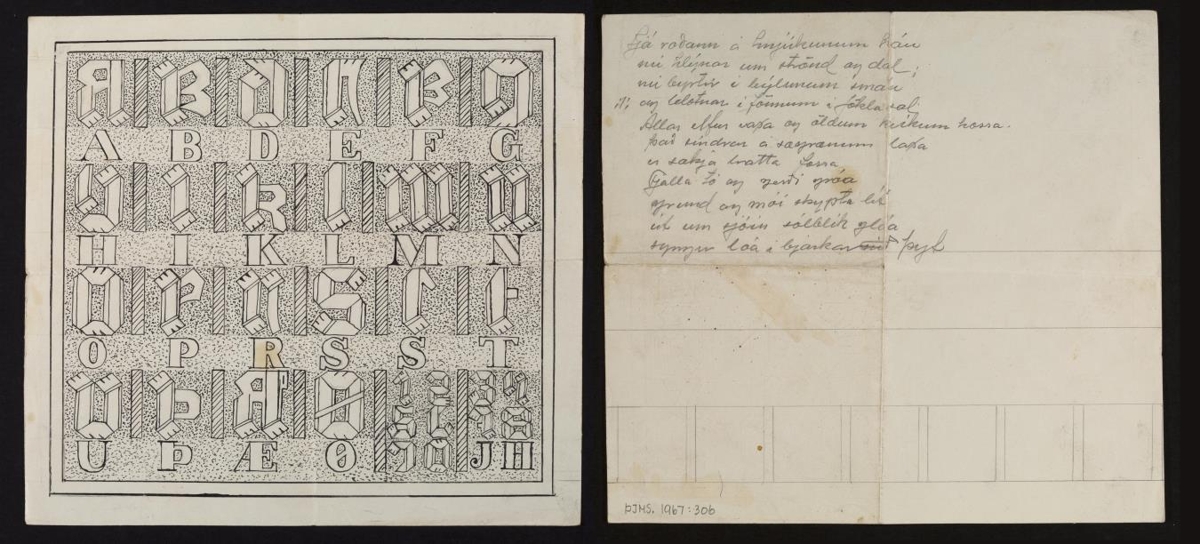 A B D E F G
H I K L M N
O P R S S T
U Þ Æ Ø JH
Sjá roðann á hnjúkunum háu
nú hlýnar um strönd og dal;
nú byrtir í býlunum smáu
og blotnar í fönnum í jökla sal.
Allar elfur vaxa og öldum kvikum hossa.
það sindrar á sægrænum laxa
er sækja bratta fossa
Fjalla tó og gerði gróa
grund og mói skypta lit
út um sjóin sólblik glóa
syngur lóa í bjarkar þyt
ÞJMS. 1967:306